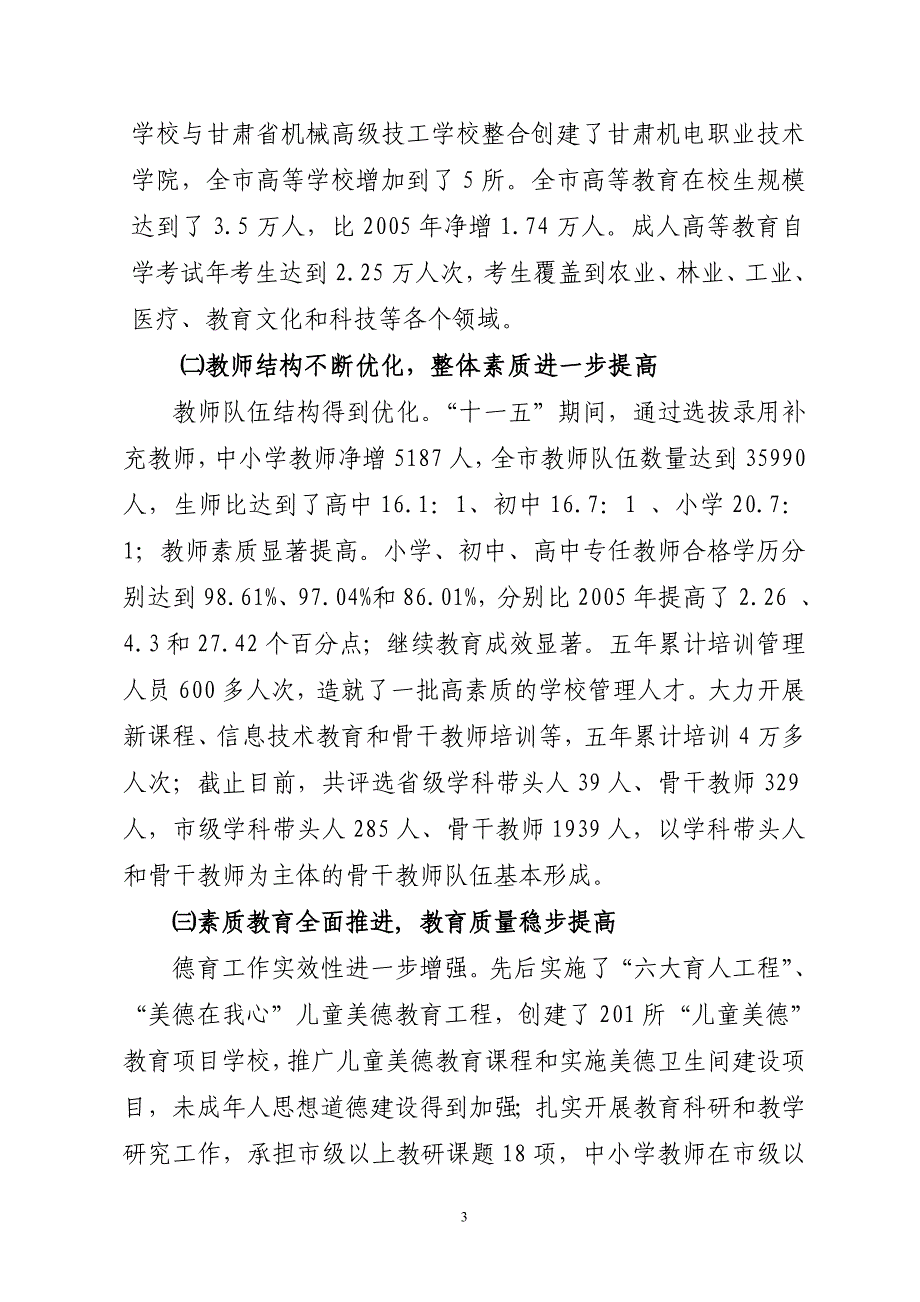 学校与甘肃省机械高级技工学校整合创建了甘肃机电职业技术
学院，全市高等学校增加到了 5 所。全市高等教育在校生规模
达到了 3.5 万人，比 2005 年净增 1.74 万人。成人高等教育自
学考试年考生达到 2.25 万人次，考生覆盖到农业、林业、工业、
医疗、教育文化和科技等各个领域。
㈡教师结构不断优化，整体素质进一步提高
教师队伍结构得到优化。“十一五”期间，通过选拔录用补
充教师，中小学教师净增 5187 人，全市教师队伍数量达到 35990
人，生师比达到了高中 16.1：1、初中 16.7：1 、小学 20.7：
1；教师素质显著提高。小学、初中、高中专任教师合格学历分
别达到 98.61%、97.04%和 86.01%，分别比 2005 年提高了 2.26 、
4.3 和 27.42 个百分点；继续教育成效显著。五年累计培训管理
人员 600 多人次，造就了一批高素质的学校管理人才。大力开展
新课程、信息技术教育和骨干教师培训等，五年累计培训 4 万多
人次；截止目前，共评选省级学科带头人 39 人、骨干教师 329
人，市级学科带头人 285 人、骨干教师 1939 人，以学科带头人
和骨干教师为主体的骨干教师队伍基本形成。
㈢素质教育全面推进，教育质量稳步提高
德育工作实效性进一步增强。先后实施了“六大育人工程”、
“美德在我心”儿童美德教育工程，创建了 201 所“儿童美德”
教育项目学校，推广儿童美德教育课程和实施美德卫生间建设项
目，未成年人思想道德建设得到加强；扎实开展教育科研和教学
研究工作，承担市级以上教研课题 18 项，中小学教师在市级以
3